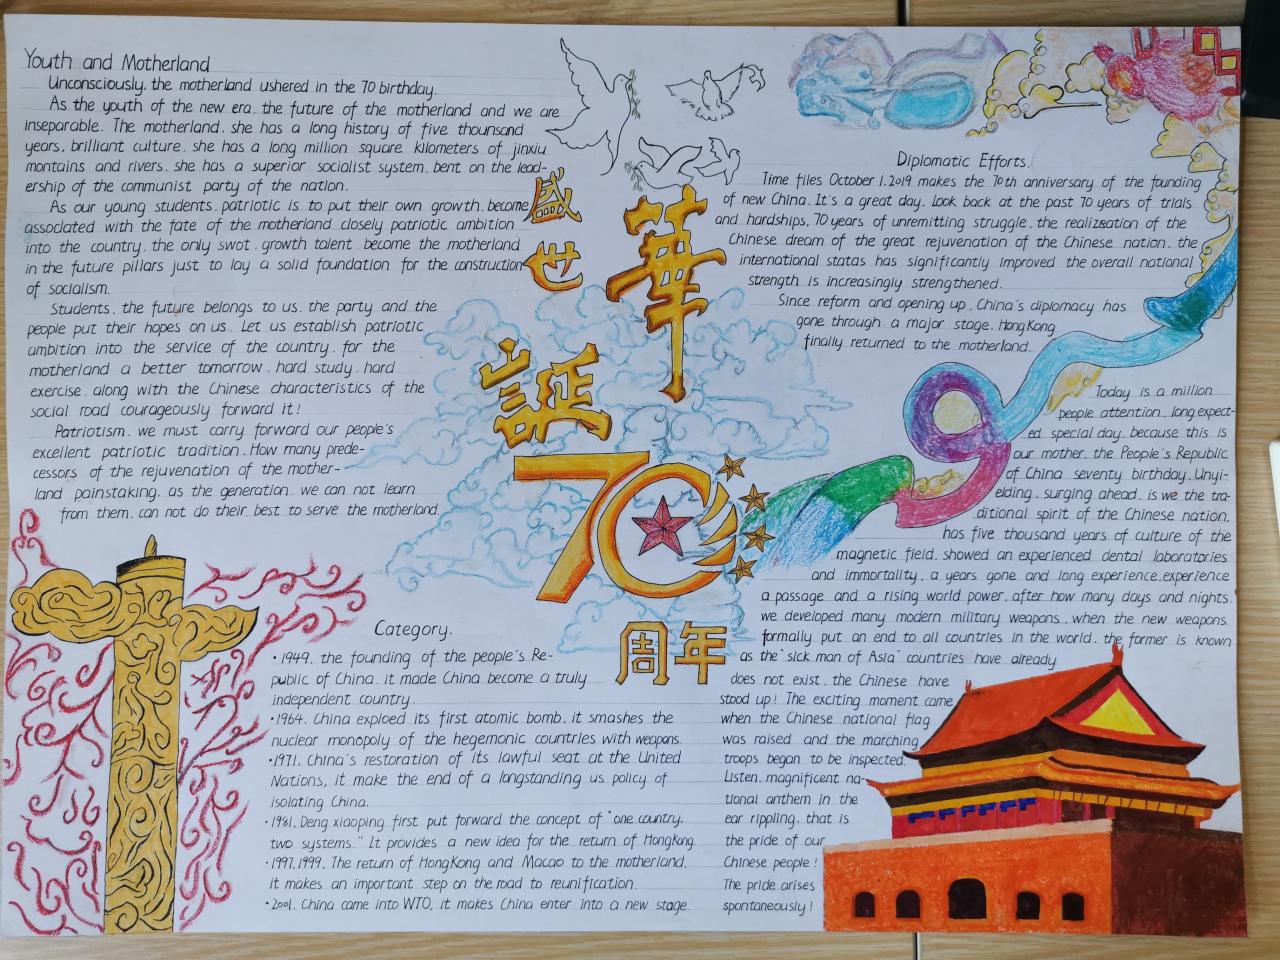 Youth and Motherland
Unconsciously, the motherland ushered in the 70 birthday.
As the youth of the new era, the future of the motherland and we are
inseparable. The motherland, she has a long history of five thounsand
years, brilliant culture, she has a long million square kilometers of jinxiu
montains and rivers, she has a superior socialist system, bent on the lead-
ership of the communist party of the nation.
As our young students, patriotic is to put their own growth, become
associated with the fate of the motherland closely patriotic ambition
into the country, the only swot, growth talent, become the motherland
in the future pillars just to lay a solid foundation for the construction
of socialism.
Students, the future belongs to us, the party and the
people put their hopes on us. Let us establish patriotic
ambition into the service of the country, for the
motherland a better tomorrow, hard study, hard
exercise, along with the Chinese characteristics of the
social road courageously forward it!
Patriotism, we must carry forward our people's
excellent patriotic tradition. How many prede-
cessors of the rejuvenation of the mother-
land painstaking, as the generation, we can not learn
from them, can not do their best to serve the motherland.
盛世
華誕
70
周年
Diplomatic Efforts.
Time files October 1.2019 makes the 70th anniversary of the founding
of new China. It's a great day. Look back at the past 70 years of trials
and hardships, 70 years of unremitting struggle, the realization of the
Chinese dream of the great rejuvenation of the Chinese nation, the
international statas has significantly improved the overall national
strength is increasingly strengthened.
Since reform and opening up, China's diplomacy has
gone through a major stage, HongKong
finally returned to the motherland.
Today is a million
people attention, long expect-
ed special day, because this is
our mother, the People's Republic
of China seventy birthday. Unyi-
elding, surging ahead, is we the tra-
ditional spirit of the Chinese nation,
has five thousand years of culture of the
magnetic field, showed an experienced dental laboratories
and immortality, a years gone and long experience, experience
a passage and a rising world power, after how many days and nights,
we developed many modern military weapons, when the new weapons
formally put an end to all countries in the world, the former is known
as the "sick man of Asia" countries have already
does not exist, the Chinese have
stood up! The exciting moment came
when the Chinese national flag
was raised and the marching
troops began to be inspected.
Listen, magnificent na-
tional anthem in the
ear rippling, that is
the pride of our
Chinese people!
The pride arises
spontaneously!
Category.
·1949, the founding of the people's Re-
public of China, it made China become a truly
independent country.
·1964, China exploed its first atomic bomb, it smashes the
nuclear monopoly of the hegemonic countries with weapons.
·1971, China's restoration of its lawful seat at the United
Nations, it make the end of a longstanding us policy of
isolating China.
·1981, Deng xiaoping first put forward the concept of "one country,
two systems." It provides a new idea for the return of HongKong.
·1997,1999, The return of HongKong and Macao to the motherland,
it makes an important step on the road to reunification.
·2001, China came into WTO, it makes China enter into a new stage.